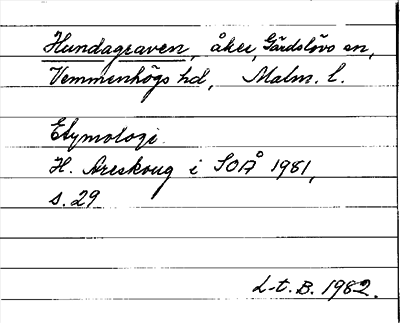 Hundagraven, åker, Gärdslövs sn,
Vemmenhögs hd, Malm. l.
Etymologi.
H. Areskoug i SOÅ 1981,
s. 29
L-t. B. 1982.